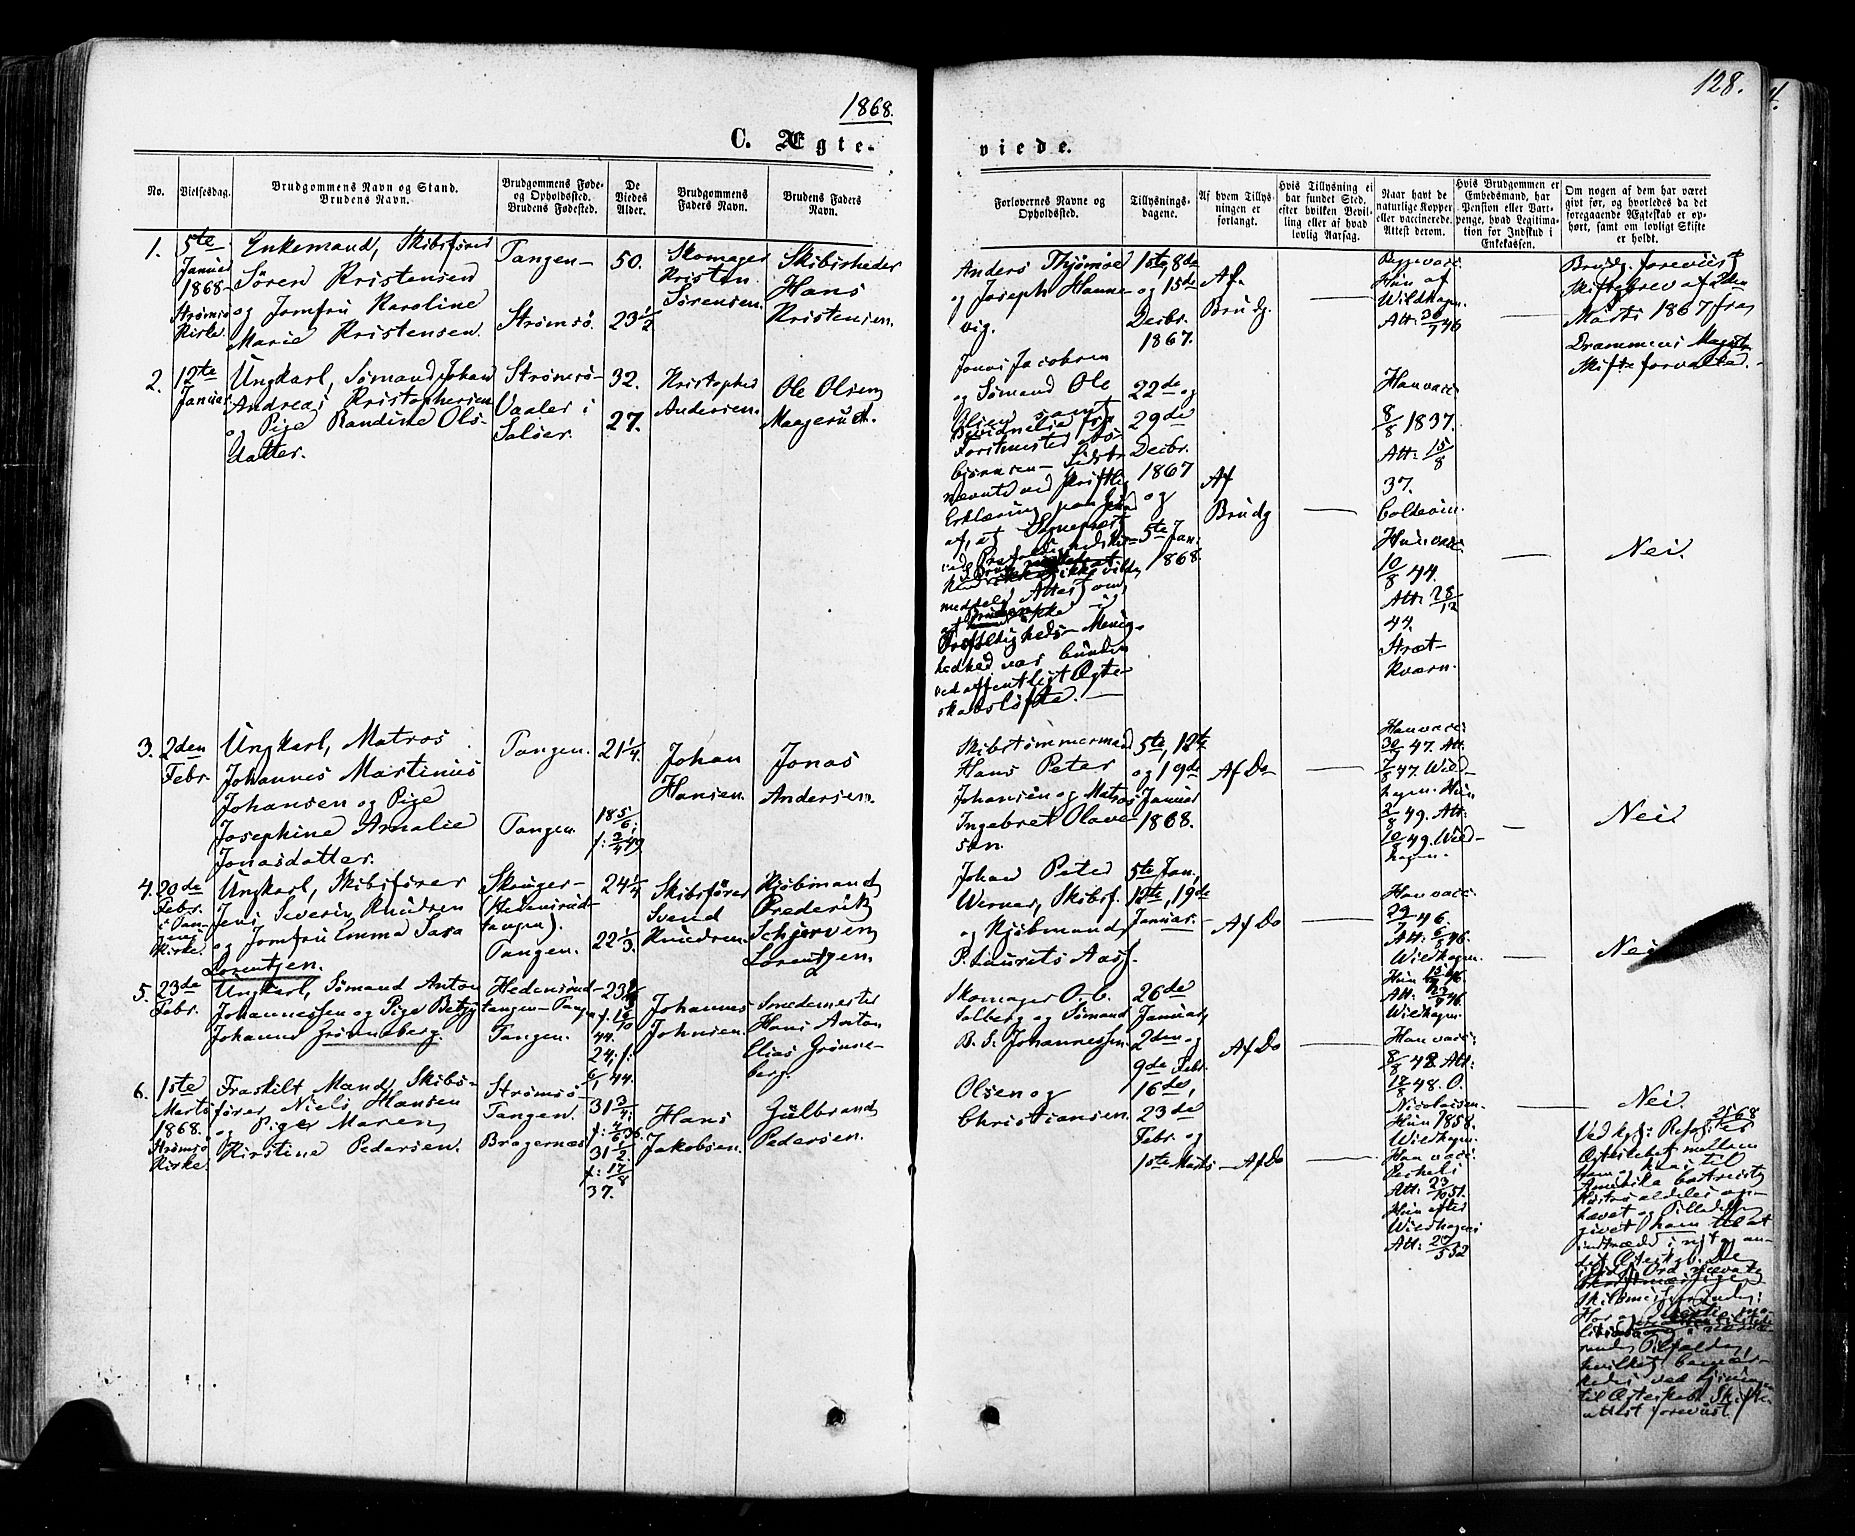 1868.
128.
C. Ægte-
viede.
No.
Vielsesdag.
Brudgommens Navn og Stand.
Brudens Navn.
Brudgommens Føde-
og Opholdssted.
Brudens Fødested.
De
Viedes
Alder.
Brudgommens
Faders Navn.
Brudens Faders
Navn.
Forlovernes Navne og
Opholdssted.
Tillysnings-
dagene.
Af hvem Tillys-
ningen er
forlangt.
Hvis Tillysning ei
har fundet Sted,
efter hvilken Bevil-
ling eller af hvad
lovlig Aarsag.
Naar havt de
naturlige Kopper
eller vaccinerede.
Attest derom.
Hvis Brudgommen er
Embedsmand, har
Pension eller Vart-
penge, hvad Legitima-
tion for Indskud i
Enkekassen.
Om nogen af dem har været
gift før, og hvorledes da det
foregaaende Ægteskab er op-
hørt, samt om lovligt Skifte
er holdt.
1.
5te
Januar
1868-
Strømsø
Kirke.
Enkemand, Skibsfører
Søren Kristensen
og Jomfru Karoline
Marie Kristensen.
Tangen-
Strømsø.
50.
23 1/2
Skomager
Kristen
Sørensen.
Skibsrheder
Hans
Kristensen.
Anders Thjømøe
og Joseph Hanne-
vig.
1ste, 8de
og 15de
Decbr.
1867.
Af
Brudg.
Begge vacc:
Hun af
Wildhagen.
Att: 30/7 46
Brudg. foreviist
Skiftebrev af 2den
Marts 1867 fra
Drammens Magist
Skifteforvalter.
2.
12te
Januar
Ungkarl, Sømand Johan
Andreas Kristophersen
og Pige Randine Ols-
datter.
Strømsø-
Vaaler i
Soløer.
32.
27.
Kristopher
Andersen.
Ole Olsen
Maagerud.
Jonas Jacobsen
og Sømand Ole
Olsen samt
Forstmester As-
bjørnsen - Sidst-
nævnte ved skriftlig
Erklæring paa Grund
af, at Sognepræst
meddele Attest om,
Trefoldigheds-Menig-
hed var bunden
ved offentligt Ægte-
skabsløfte.
22de og
29de
Decbr.
1867
og
5te Jan.
1868.
Af
Brudg
Han vacc:
8/8 1837.
Att: 15/8
37.
Coldevin.
Hun vacc:
10/8 44.
Att: 28/12
44.
Stræt-
kværn.
Nei.
3.
2den
Febr.
Ungkarl, Matros
Johannes Martinus
Johansen og Pige
Josephine Amalie
Jonasdatter.
Tangen.
Tangen.
21 1/4.
18 5/6;
f: 2/4 49
Johan
Hansen.
Jonas
Andersen.
Skibstømmermand
Hans Peter
Johansen og Matros
Ingebret Olave-
sen.
5te, 12te
og 19de
Januar
1868.
Af Do
Han vacc:
30/7 47. Att.
7/8 47. Wild-
hagen. Hun
2/8 49. Att:
10/8 49. Wild-
hagen.
Nei.
4.
20de
Febr.
i Tan-
gens
Kirke.
Ungkarl, Skibsfører
Jens Severin Knudsen
og Jomfru Emma Sara
Lorentzen.
Skouger-
(Hedensrud-
tangen).
Tangen.
24 1/4
22 1/3.
Skibsfører
Svend
Knudsen.
Kjøbmand
Frederik
Schjerven
Lorentzen.
Johan Peter
Werner, Skibsf.
og Kjøbmand
P. Laurits Aass.
5te Jan,
12te, 19de
Januar.
Af Do
Han vacc:
29/7 46.
Att: 6/8 46.
Wildhagen.
Hun 15/8 46
Wildhagen.
Nei
5.
23de
Febr.
Ungkarl, Sømand Anton
Johannessen og Pige Betzy
Johanne Grønneberg.
Hedensrud-
tangen-Tangen
Tangen.
44.
24; f:
6/1 44.
Johannes
Johnsen.
Smedemester
Hans Anton
Elias Grønne-
berg.
Skomager O. C.
Solberg og Sømand
B. S. Johannessen.
26de
Januar,
2den og
9de Febr.
Af Do
Han vacc:
8/8 48. Att:
18/8 48. O.
Nicolaisen.
Hun 1858.
Wildhagen.
Nei.
6.
1ste
Marts
1868.
Strømsø
Kirke.
Fraskilt Mand, Skibs-
fører Niels Hansen
og Pige Maren
Kirstine Pedersen.
Strømsø-
Tangen.
Bragernæs
31 3/4;
31 1/2
f: 17/8
37.
Hans
Jakobsen.
Gulbrand
Pedersen.
Olsen og
Christiansen.
16de,
23de
Febr. og
1ste Marts
Af Do
Han vacc:
Att: 23/10 51.
Hun efter
Wildhagens
Att: 20/5 52
Ved kgl: Resol: 25/1 68 er
Ægteskabet mellem
ham og hans til
Amerika bortreiste
Hustru aldeles op-
hævet og Tilladelse
givet ham til at
indtræde i nyt og an-
det Ægteskab. De
Ord nævnte
Tilfælde,
hvilket bemær-
kedes ved Lysningen
til Ægteskab. Skifte-
attest foreviist.